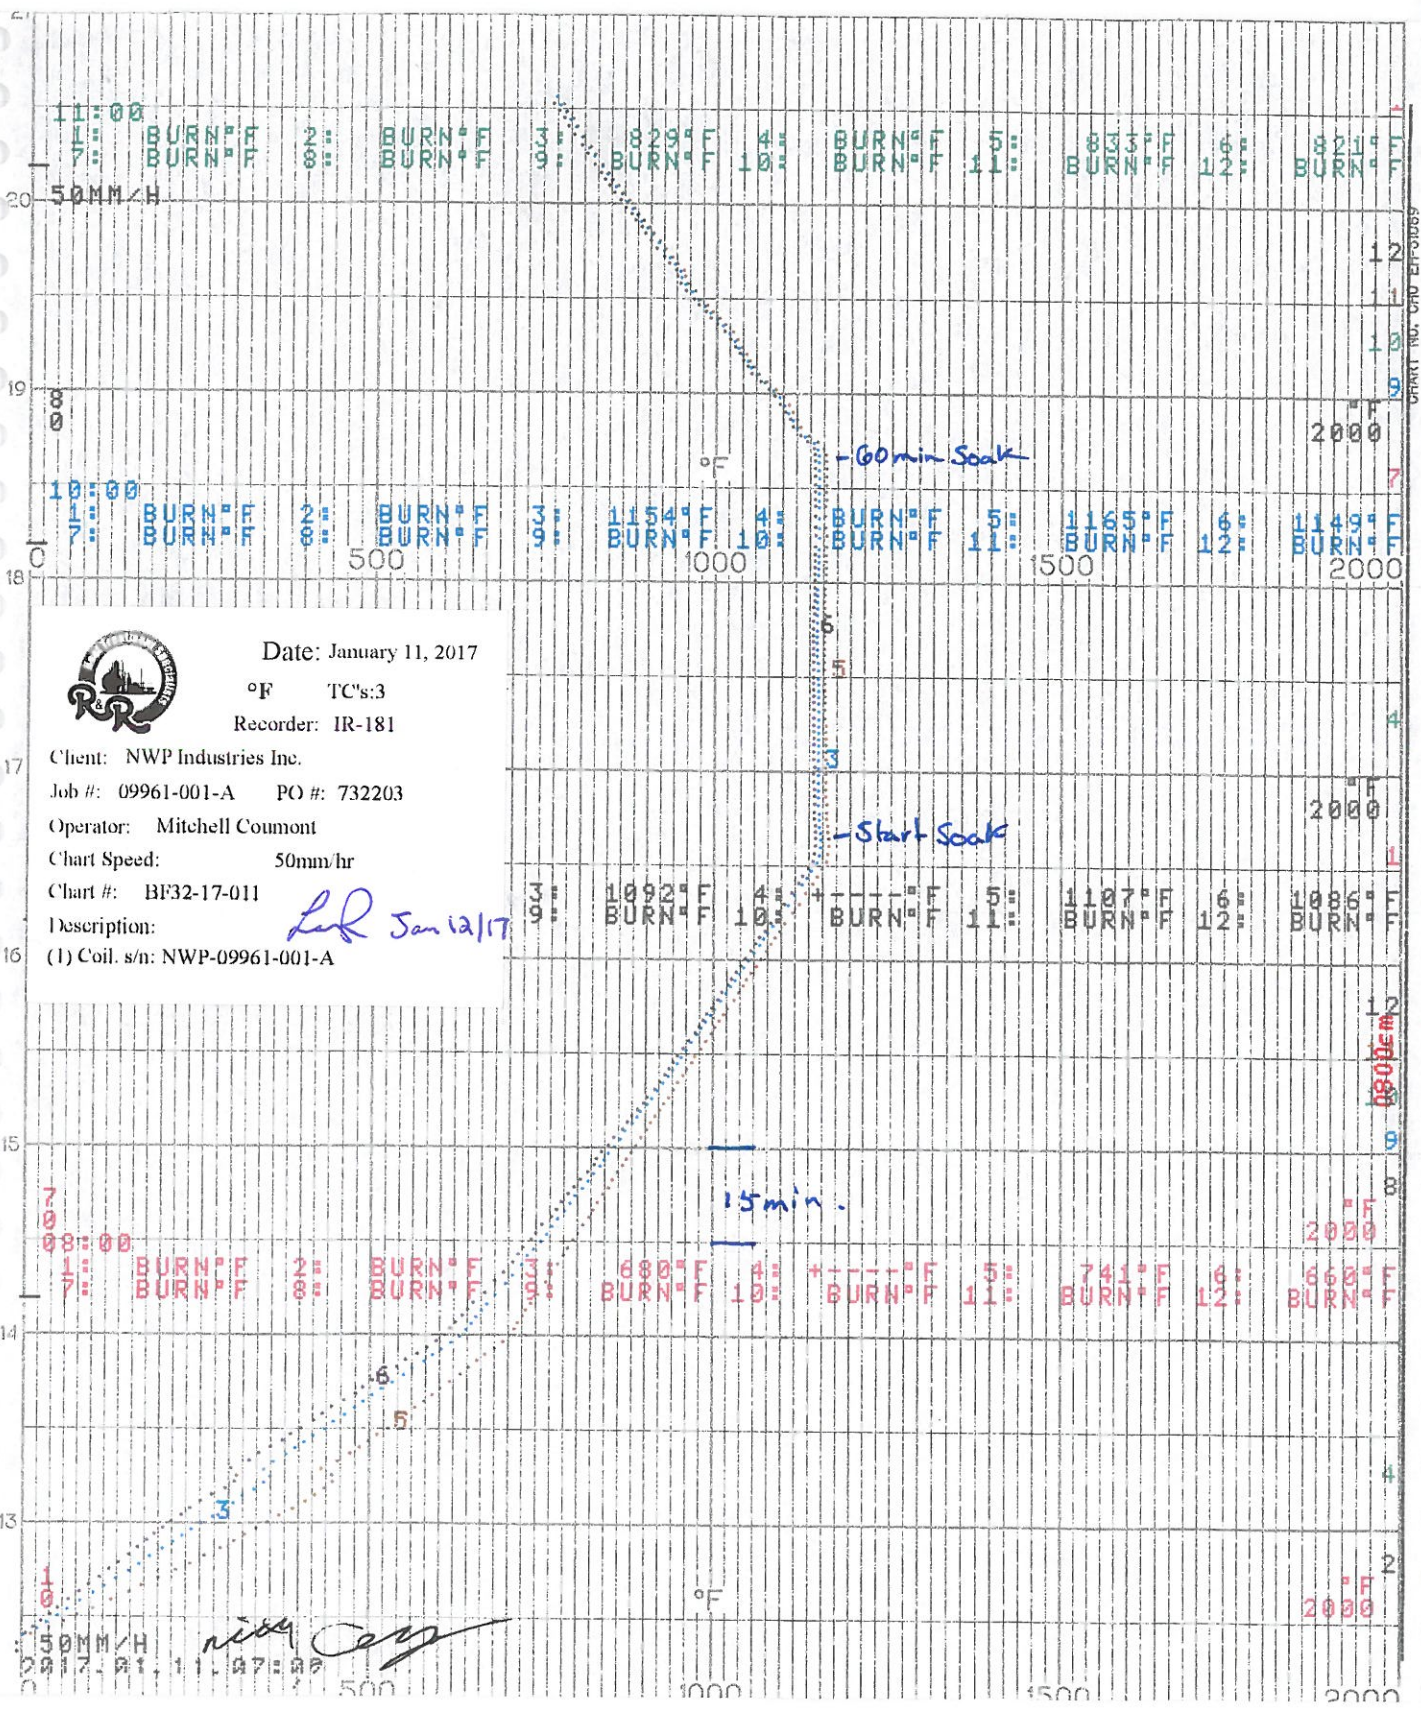 21
11:00
1: BURN°F 2: BURN°F 3: 829°F 4: BURN°F 5: 833°F 6: 821°F
7: BURN°F 8: BURN°F 9: BURN°F 10: BURN°F 11: BURN°F 12: BURN°F
20 50MM/H
12
11
10
CHART NO.
9
19
80
°F
2000
°F
- 60min Soak
7
10:00
1: BURN°F 2: BURN°F 3: 1154°F 4: BURN°F 5: 1165°F 6: 1149°F
7: BURN°F 8: BURN°F 9: BURN°F 10: BURN°F 11: BURN°F 12: BURN°F
0 500 1000 1500 2000
18
6
5
4
3
Date: January 11, 2017
°F TC's:3
R&R
Recorder: IR-181
Client: NWP Industries Inc.
Job #: 09961-001-A PO #: 732203
Operator: Mitchell Coumont
Chart Speed: 50mm/hr
Chart #: BF32-17-011
Description:
Jan 12/17
(1) Coil. s/n: NWP-09961-001-A
17
°F
2000
- Start Soak
1
3: 1092°F 4: +----°F 5: 1107°F 6: 1086°F
9: BURN°F 10: BURN°F 11: BURN°F 12: BURN°F
16
12
10
9
15
15 min.
8
70
°F
2000
08:00
1: BURN°F 2: BURN°F 3: 680°F 4: +----°F 5: 741°F 6: 660°F
7: BURN°F 8: BURN°F 9: BURN°F 10: BURN°F 11: BURN°F 12: BURN°F
14
6
5
4
3
13
2
10
°F
°F
2000
50MM/H
0 500 1000 1500 2000